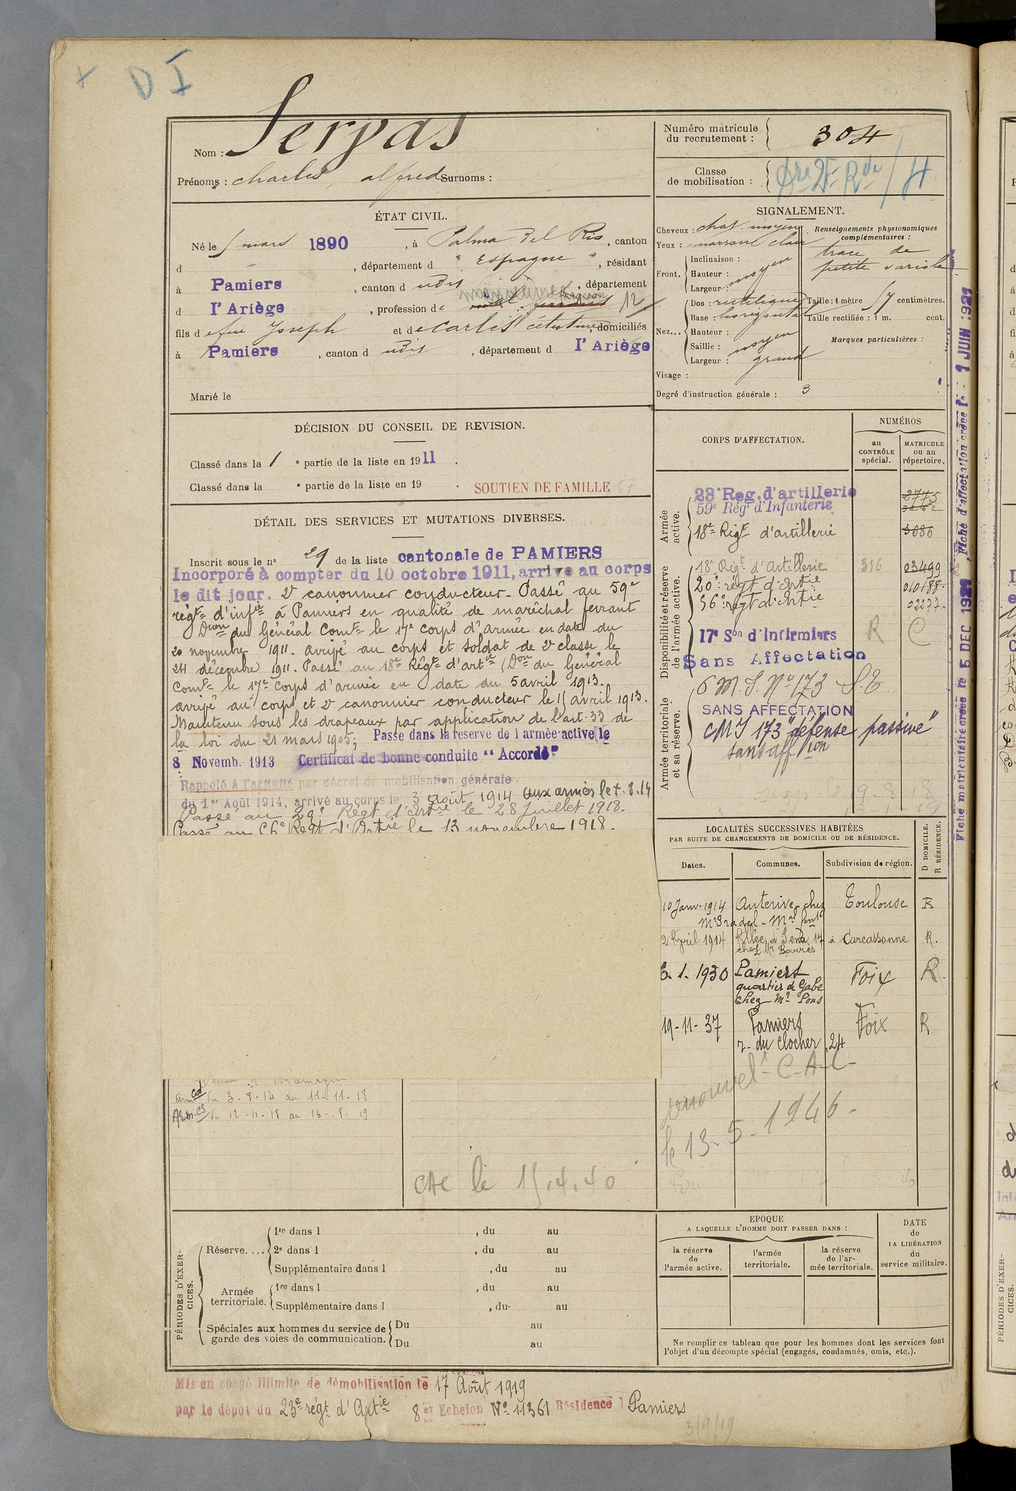 + D I
Nom : Servas
Prénoms : Charles, Alfred Surnoms :
Numéro matricule du recrutement : 304
Classe de mobilisation :
ÉTAT CIVIL.
Né le 5 mars 1890, à Palma del Rio, canton
d " , département d " Espagne ", résidant
à Pamiers, canton d udit, département
d l'Ariège, profession de 12
fils de feu Joseph et de domiciliés
à Pamiers, canton d udit, département d l'Ariège
Marié le
SIGNALEMENT.
Cheveux : chat. moyen
Yeux : marron clair
Front. Inclinaison :
Hauteur : moyen
Largeur :
Nez... Dos : rectiligne
Base : horizontal
Hauteur :
Saillie : moyen
Largeur : grand
Visage :
Degré d'instruction générale : 3
Renseignements physionomiques complémentaires :
trace de
petite variole
Taille : 1 mètre 57 centimètres.
Taille rectifiée : 1 m. cent.
Marques particulières :
DÉCISION DU CONSEIL DE REVISION.
Classé dans la 1 e partie de la liste en 1911.
Classé dans la e partie de la liste en 19 . SOUTIEN DE FAMILLE
DÉTAIL DES SERVICES ET MUTATIONS DIVERSES.
Inscrit sous le n° 29 de la liste cantonale de PAMIERS
Incorporé à compter du 10 octobre 1911, arrivé au corps
le dit jour. 2e canonnier conducteur. Passé au 59e
régt d'infie à Pamiers en qualité de maréchal ferrant
Don du Général Comt le 17e corps d'armée en date du
20 novembre 1911. arrivé au corps et soldat de 2e classe le
24 décembre 1911. Passé au 18e Régt d'artie (Don du Général
Comt le 17e corps d'armée en date du 5 avril 1913.
arrivé au corps et 2e canonnier conducteur le 15 avril 1913.
Maintenu sous les drapeaux par application de l'art. 33 de
la loi du 21 mars 1905, Passé dans la réserve de l'armée active le
8 Novemb. 1913 Certificat de bonne conduite "Accordé"
Rappelé à l'activité par décret de mobilisation générale
du 1er Août 1914, arrivé au corps le 3 août 1914 aux armées le 7.8.14
Passé au 29e Régt d'artie le 28 juillet 1918.
Passé au Régt d'Artie le 13 novembre 1918.
du 3-8-14 au 11-11-18
du 12-11-18 au 16-8-19
CAC le 15.4.40
CORPS D'AFFECTATION.
NUMÉROS
au CONTRÔLE spécial.
MATRICULE ou au répertoire.
Armée active.
28e Reg. d'artillerie 2745
59e Régt d'Infanterie
18e Régt d'artillerie 3686
Disponibilité et réserve de l'armée active.
18e Régt d'Artillerie 316 03499
20e régt d'Artie 010188
56e régt d'Artie 02277
17e Son d'Infirmiers R C
Sans Affectation
Armée territoriale et sa réserve.
C M J N° 173 S.E
SANS AFFECTATION
CMJ 173 "défense passive"
sans affion
Fiche matriculaire créée le 5 DEC 1921, Fiche d'affectation créée le 1 JUIN 1921
LOCALITÉS SUCCESSIVES HABITÉES
PAR SUITE DE CHANGEMENTS DE DOMICILE OU DE RÉSIDENCE.
Dates. Communes. Subdivision de région. D DOMICILE. R RÉSIDENCE.
10 Janv. 1914 Auterive, chez Toulouse R
2 Avril 1914 à Carcassonne R.
3. 1. 1930 Pamiers Foix R.
quartier de Gabe
chez Mr Pons
19-11-37 Pamiers Foix R
r. du Clocher 24
C.A.C.
le 13-5-1946.
PÉRIODES D'EXERCICES.
Réserve.... 1re dans l , du au
2e dans l , du au
Supplémentaire dans l , du au
Armée territoriale. 1re dans l , du au
Supplémentaire dans l , du au
Spéciales aux hommes du service de garde des voies de communication. Du au
Du au
EPOQUE
A LAQUELLE L'HOMME DOIT PASSER DANS :
la réserve de l'armée active.
l'armée territoriale.
la réserve de l'armée territoriale.
DATE de LA LIBÉRATION du service militaire.
Ne remplir ce tableau que pour les hommes dont les services font
l'objet d'un décompte spécial (engagés, condamnés, omis, etc.).
Mis en congé illimité de démobilisation le 17 Août 1919
par le dépôt du 23e régt d'Artie 8e Echelon N° 11361 Résidence Pamiers
3/9/19